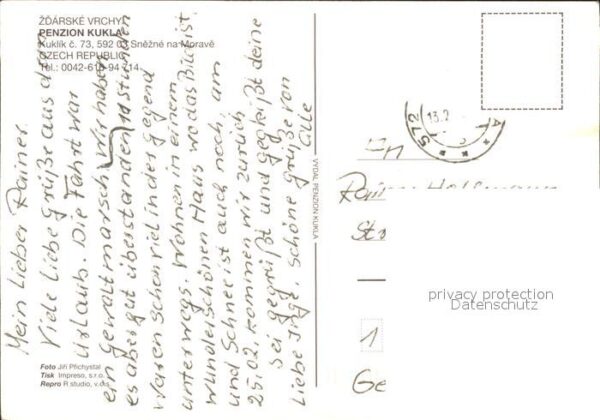 ŽĎÁRSKÉ VRCHY
PENZION KUKLA
Kuklík č. 73, 592 03 Sněžné na Moravě
CZECH REPUBLIC
Tel.: 0042-616-94 714
Mein Lieber Rainer.
Viele Liebe Grüße aus dem
Urlaub. Die Fahrt war
ein Gewaltmarsch, wir haben
es aber gut überstanden, 11 stunden
Waren schon viel in der Gegend
unterwegs. Wohnen in einem
wunderschönen Haus wo das Bild ist.
und Schnee ist auch noch, am
25.02. kommen wir zurück
sei gegrüßt und gegrüßt deine
Liebe Inge. Schöne Grüße von
Alle
Foto Jiří Přichystal
Tisk Impreso, s.r.o.
Repro R studio, v.o.s.
VYDAL PENZION KUKLA
13.2
An
Rainer
Str
1
Ge
privacy protection
Datenschutz